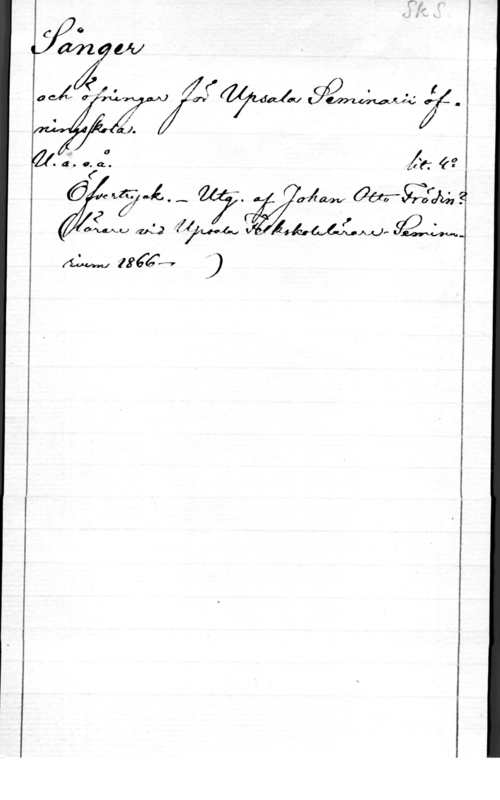 SkS.
Sånger
och öfningar för Upsala Seminarii öf-
ningskola.
U. å. o. å. lit. 4:o
Öfvertryck. – Utg. af Johan Otto Frödin?
(Lärare vid Upsala Folkskolelärare-Semina-
rium 1866– )